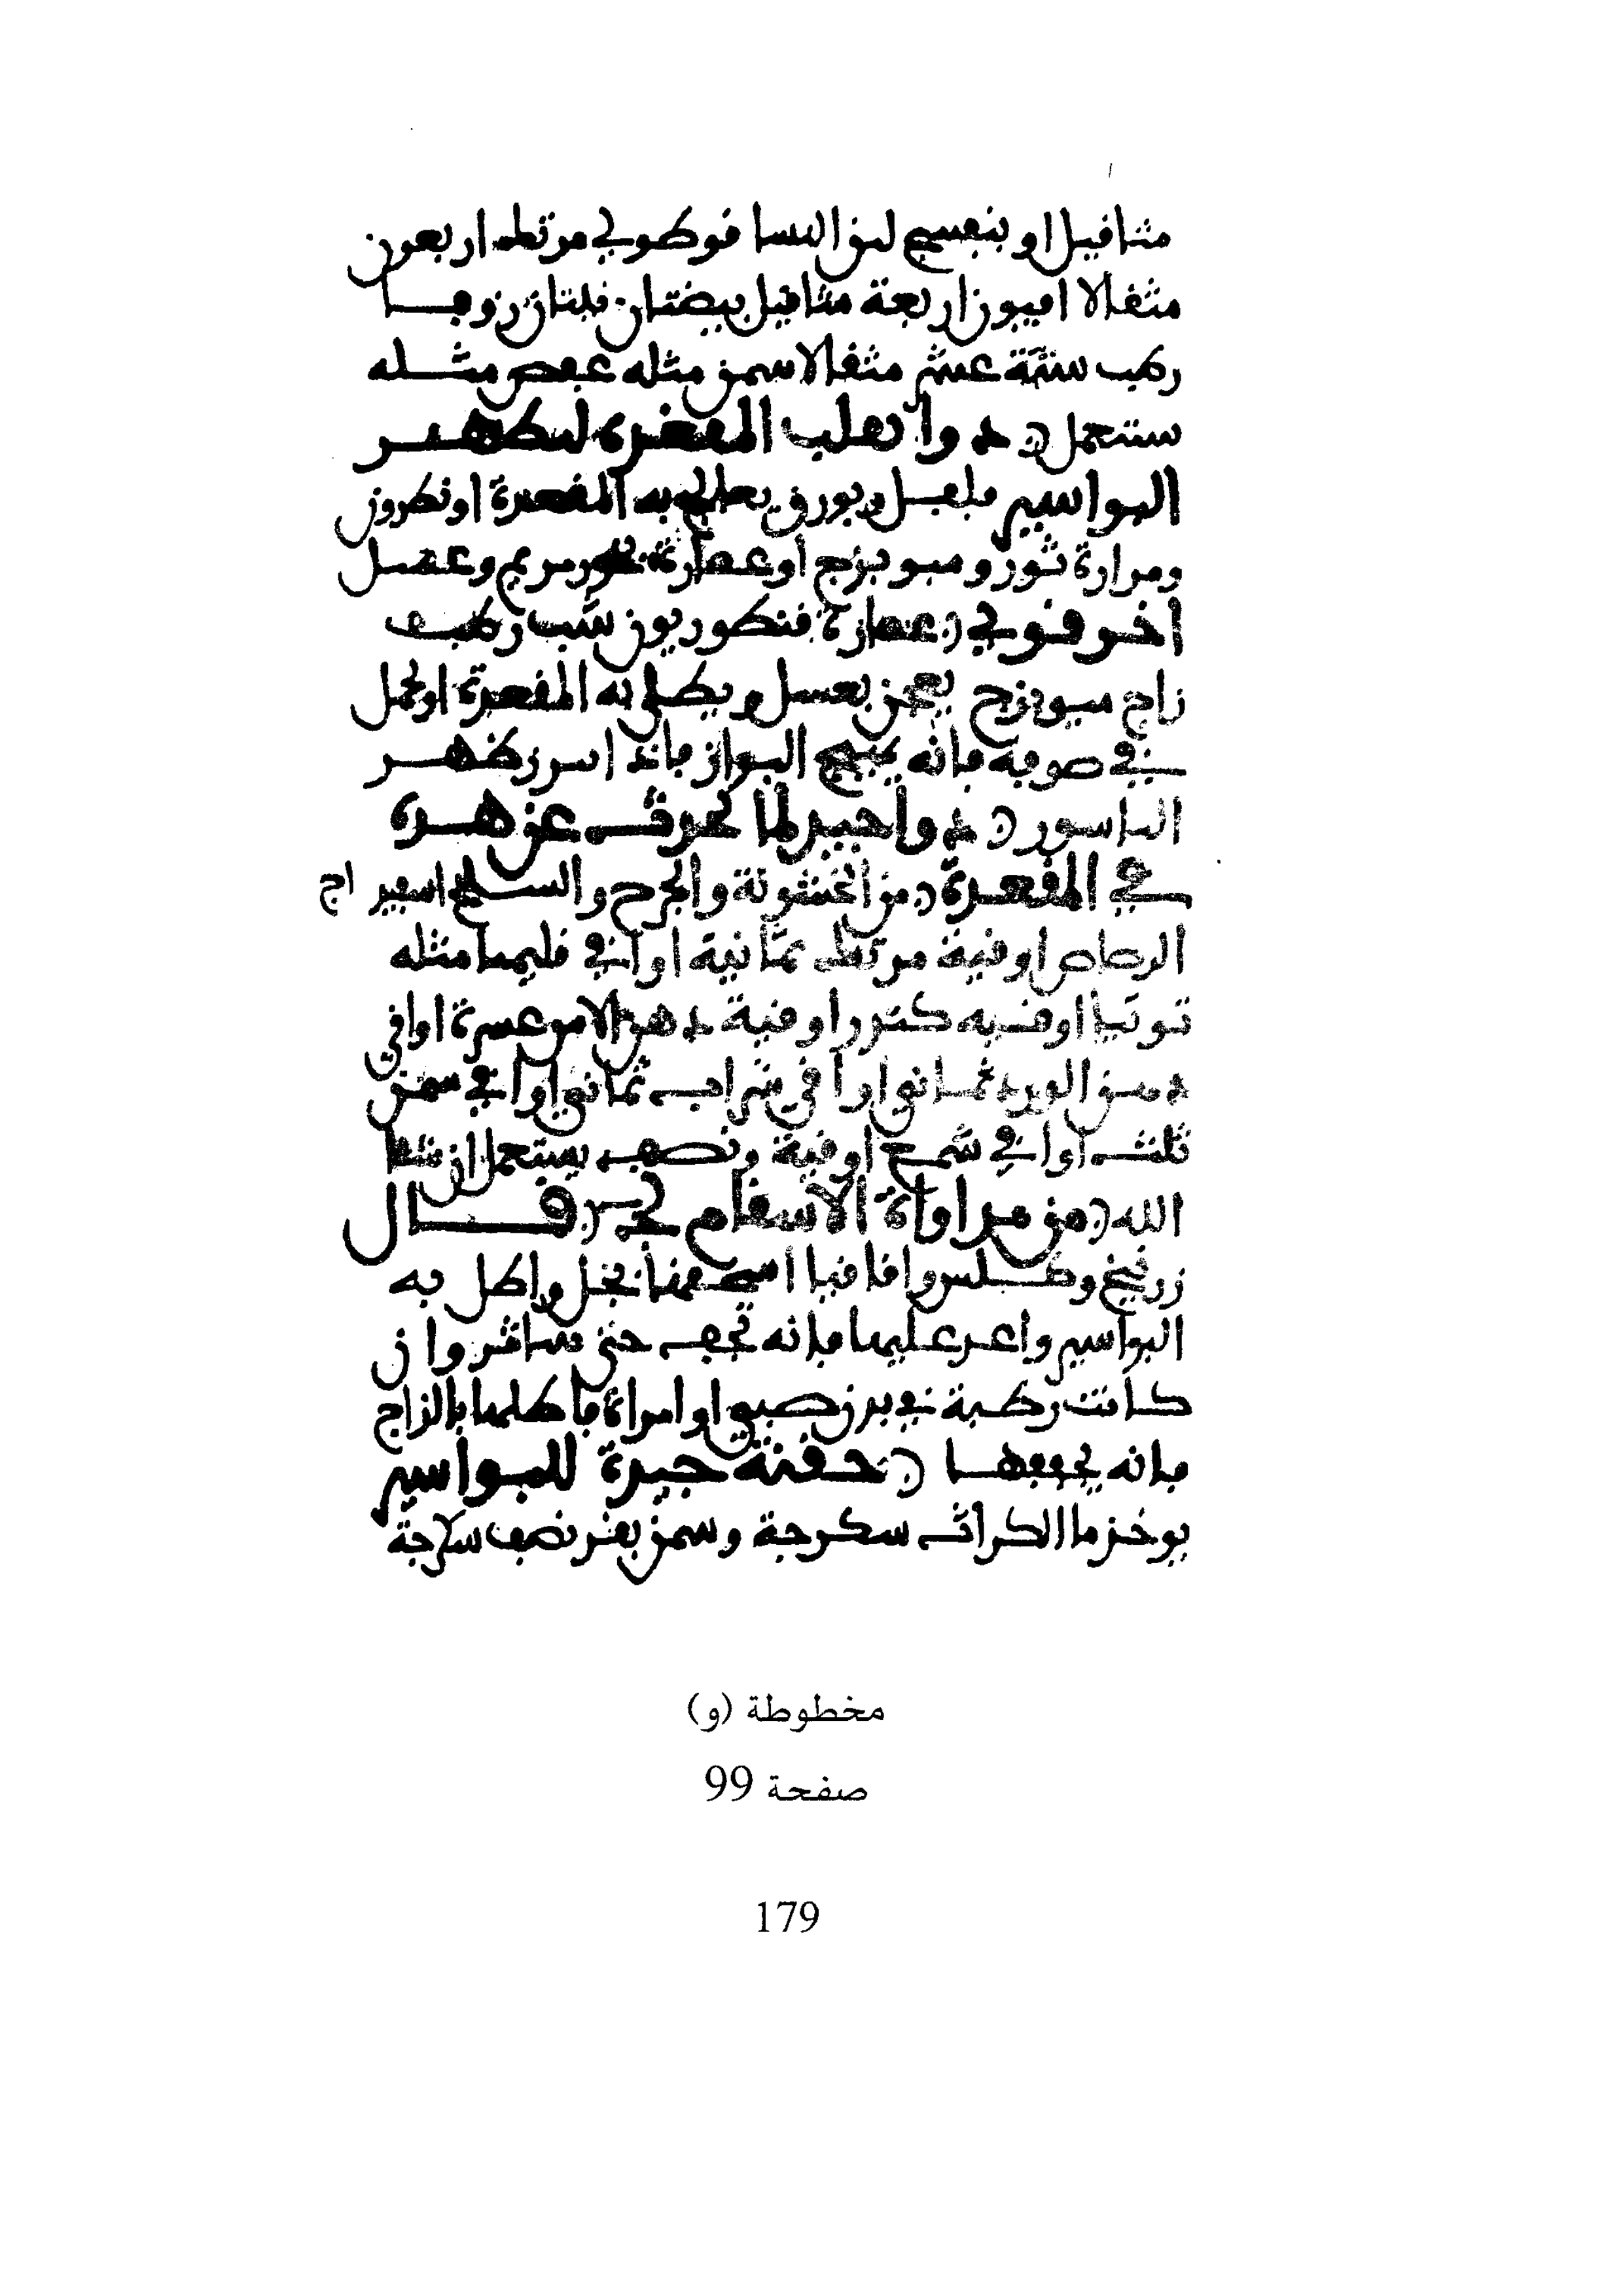 مثاقيل او بنفسج لبن النسا قوطولي مرتك اربعون
مثقالا افيون اربعة مثاقيل بيضتان فليتان زوفا
رطب ستة عشر مثقالا سمن مثله عفص مثله
يستعمل دوا يقلب المقعدة ليظهر
البواسير فلفل وبورق يعالج به المقعدة او نطرون
ومرارة ثور وميوبزج او عصارة بخور مريم وعسل
اخر قوي عصارة قنطوريون شب رطب
زاج ميوبزج يعجن بعسل ويطلى به المقعدة او تحمل
في صوفة فانه يهيج البراز فاذا ظهر
الباسور دوا جيد لما تخوف عن هده
في المقعدة من الخشونة والجرح والسلخ اسفيداج
الرصاص اوقية مرتك ثمانية اواقي قليميا مثله
توتيا اوقيه كندر اوقية دهن الاس عشرة اواقي
دهن الورد ثماني اواقي شراب ثماني اواقي سمن
ثلث اواقي شمع اوقية ونصف يستعمل ان شا
الله من مداواة الاسقام قال
زرنيخ وكلس واقاقيا اسحقها بخل واطل به
البواسير واعد عليها فانه تجف حتى تتناثر وان
كانت رطبة في بدن صبي او امراة فاطلها بالزاج
فانه يجففها حقنة جيدة للبواسير
يوخذ ما الكراث سكرجة وسمن بقر نصف سكرجة
مخطوطة (و)
صفحة 99
179